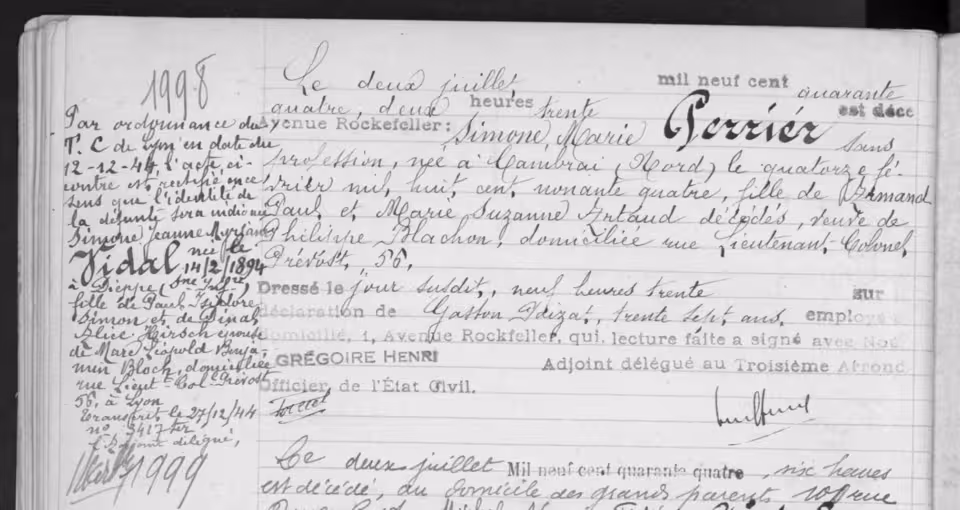 1998
Par ordonnance du
T. C de Lyon en date du
12-12-44, l'acte ci-
contre est rectifié en ce
sens que l'identité de
la défunte sera indiquée
Simone Jeanne Myriam
Vidal née le
14/2/1894
à Dieppe, (Sne Infre)
fille de Paul Isidore
Simon et de Dinah
Alice Hirsch épouse
de Marc Léopold Benja-
min Bloch, domiciliée
rue Lieut-Col-Prévost
56, à Lyon
Transcrit le 27/12/44
no 3417 ter
L'Adjoint délégué,
Le deux juillet mil neuf cent quarante
quatre, deux heures trente est décé
Avenue Rockefeller: Simone Marie Perrier sans
profession, née à Cambrai (Nord) le quatorze fé-
vrier mil, huit, cent, nonante quatre, fille de Armand
Paul, et Marie Suzanne Artaud décédés, veuve de
Philippe Blachon, domiciliée rue Lieutenant-Colonel,
Prévost, 56.
Dressé le jour susdit, neuf heures trente sur
déclaration de Gaston trente sept ans, employé
domicilié, 1, Avenue Rockfeller, qui, lecture faite a signé avec Nous
GRÉGOIRE HENRI Adjoint délégué au Troisième Arrond
Officier, de l'État Civil.
1999
Le deux juillet Mil neuf cent quarante quatre, six heures
est décédé, au domicile des grands parents 100 rue